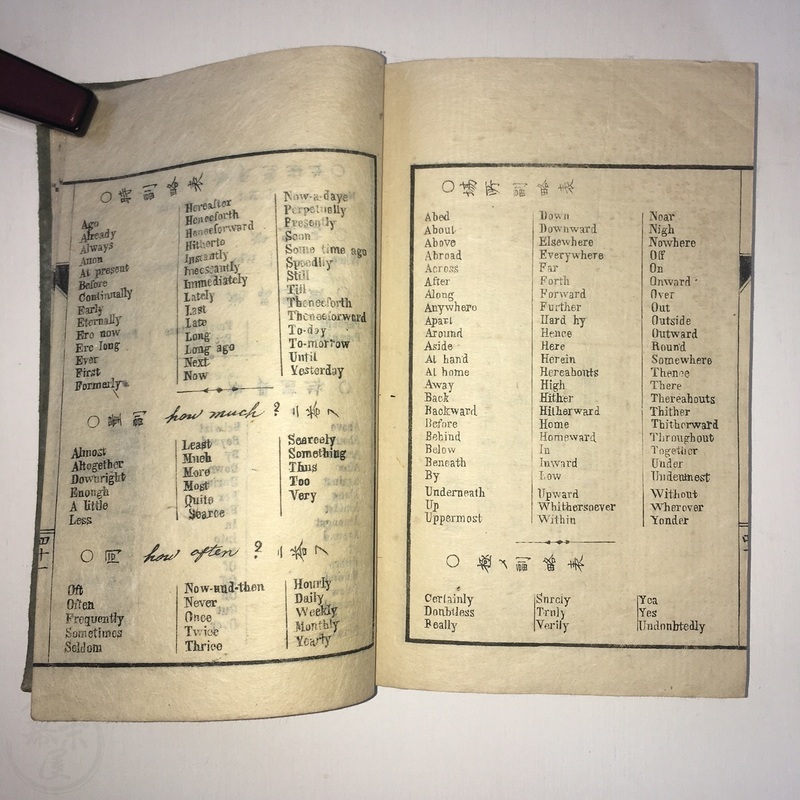 ○時副略表
Ago
Already
Always
Anon
At present
Before
Continually
Early
Eternally
Ere now
Ere long
Ever
First
Formerly
Hereafter
Henceforth
Henceforward
Hitherto
Instantly
Incessantly
Immediately
Lately
Last
Late
Long
Long ago
Next
Now
Now-a-days
Perpetually
Presently
Soon
Some time ago
Speedily
Still
Till
Thenceforth
Thenceforward
To-day
To-morrow
Until
Yesterday
○量副 how much? ニ答フ
Almost
Altogether
Downright
Enough
A little
Less
Least
Much
More
Most
Quite
Scarce
Scarcely
Something
Thus
Too
Very
○回 how often? ニ答フ
Oft
Often
Frequently
Sometimes
Seldom
Now-and-then
Never
Once
Twice
Thrice
Hourly
Daily
Weekly
Monthly
Yearly
四十一
○場所副略表
Abed
About
Above
Abroad
Across
After
Along
Anywhere
Apart
Around
Aside
At hand
At home
Away
Back
Backward
Before
Behind
Below
Beneath
By
Underneath
Up
Uppermost
Down
Downward
Elsewhere
Everywhere
Far
Forth
Forward
Further
Hard by
Hence
Here
Herein
Hereabouts
High
Hither
Hitherward
Home
Homeward
In
Inward
Low
Upward
Whithersoever
Within
Near
Nigh
Nowhere
Off
On
Onward
Over
Out
Outside
Outward
Round
Somewhere
Thence
There
Thereabouts
Thither
Thitherward
Throughout
Together
Under
Undermost
Without
Wherever
Yonder
○極メ副略表
Certainly
Doubtless
Really
Surely
Truly
Verily
Yea
Yes
Undoubtedly